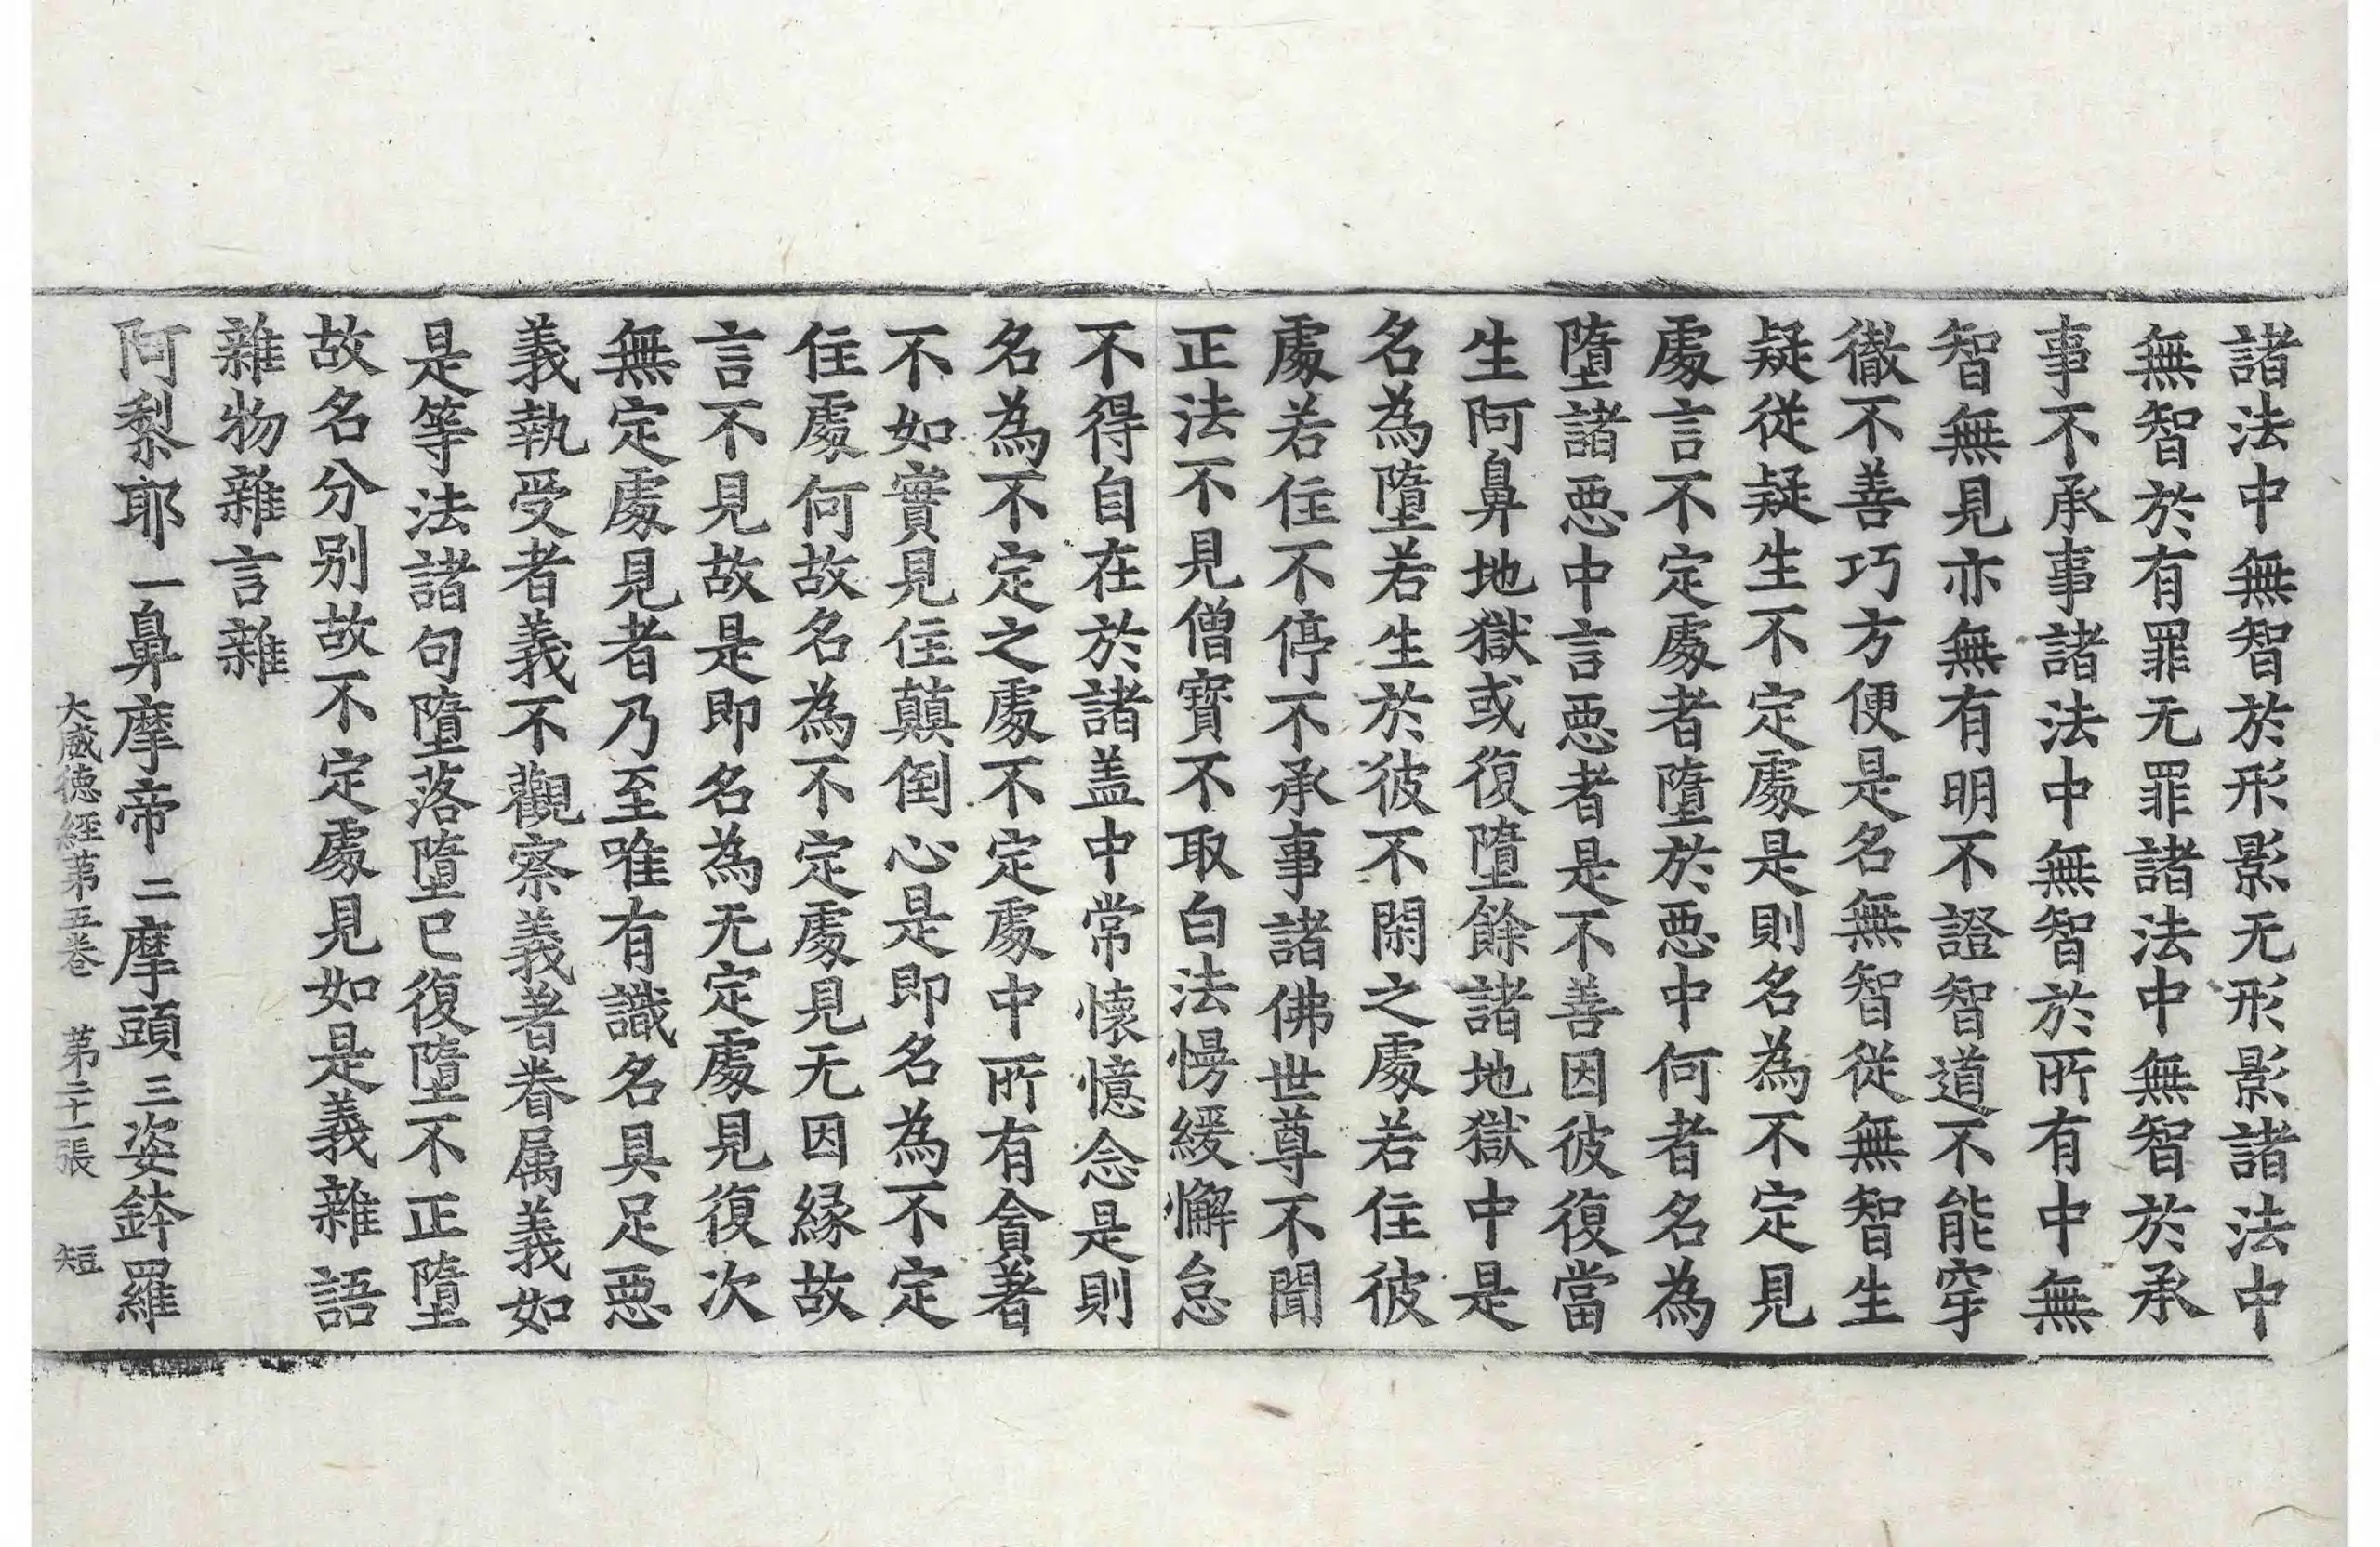 諸法中無智於形影无形影諸法中
無智於有罪无罪諸法中無智於承
事不承事諸法中無智於所有中無
智無見亦無有明不證智道不能穿
徹不善巧方便是名無智從無智生
疑從疑生不定處是則名為不定見
處言不定處者墮於惡中何者名為
墮諸惡中言惡者是不善因彼復當
生阿鼻地獄或復墮餘諸地獄中是
名為墮若生於彼不閑之處若住彼
處若住不停不承事諸佛世尊不聞
正法不見僧寶不取白法慢緩懈怠
不得自在於諸盖中常懷憶念是則
名為不定之處不定處中所有貪著
不如實見住顛倒心是即名為不定
住處何故名為不定處見无因緣故
言不見故是即名為无定處見復次
無定處見者乃至唯有識名具足惡
義執受者義不觀察義著眷属義如
是等法諸句墮落墮已復墮不正墮
故名分別故不定處見如是義雜語
雜物雜言雜
阿梨耶一鼻摩帝二摩頭三姿鉢羅
大威德經苐五卷 苐二十一張 短